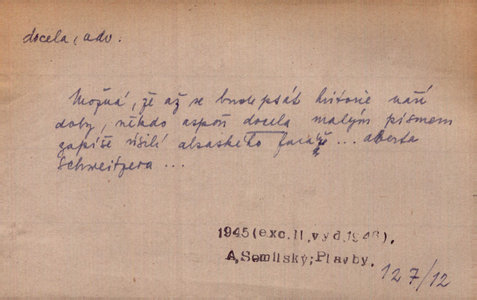 docela, adv.
Možná, že až se bude psát historie naší
doby, někdo aspoň docela malým písmem
zapíše úsilí alsaského faráře ... alberta
Schweitzera ...
1945 (exc. II. vyd. 1946).
A. Semilský; Plavby.
127/12